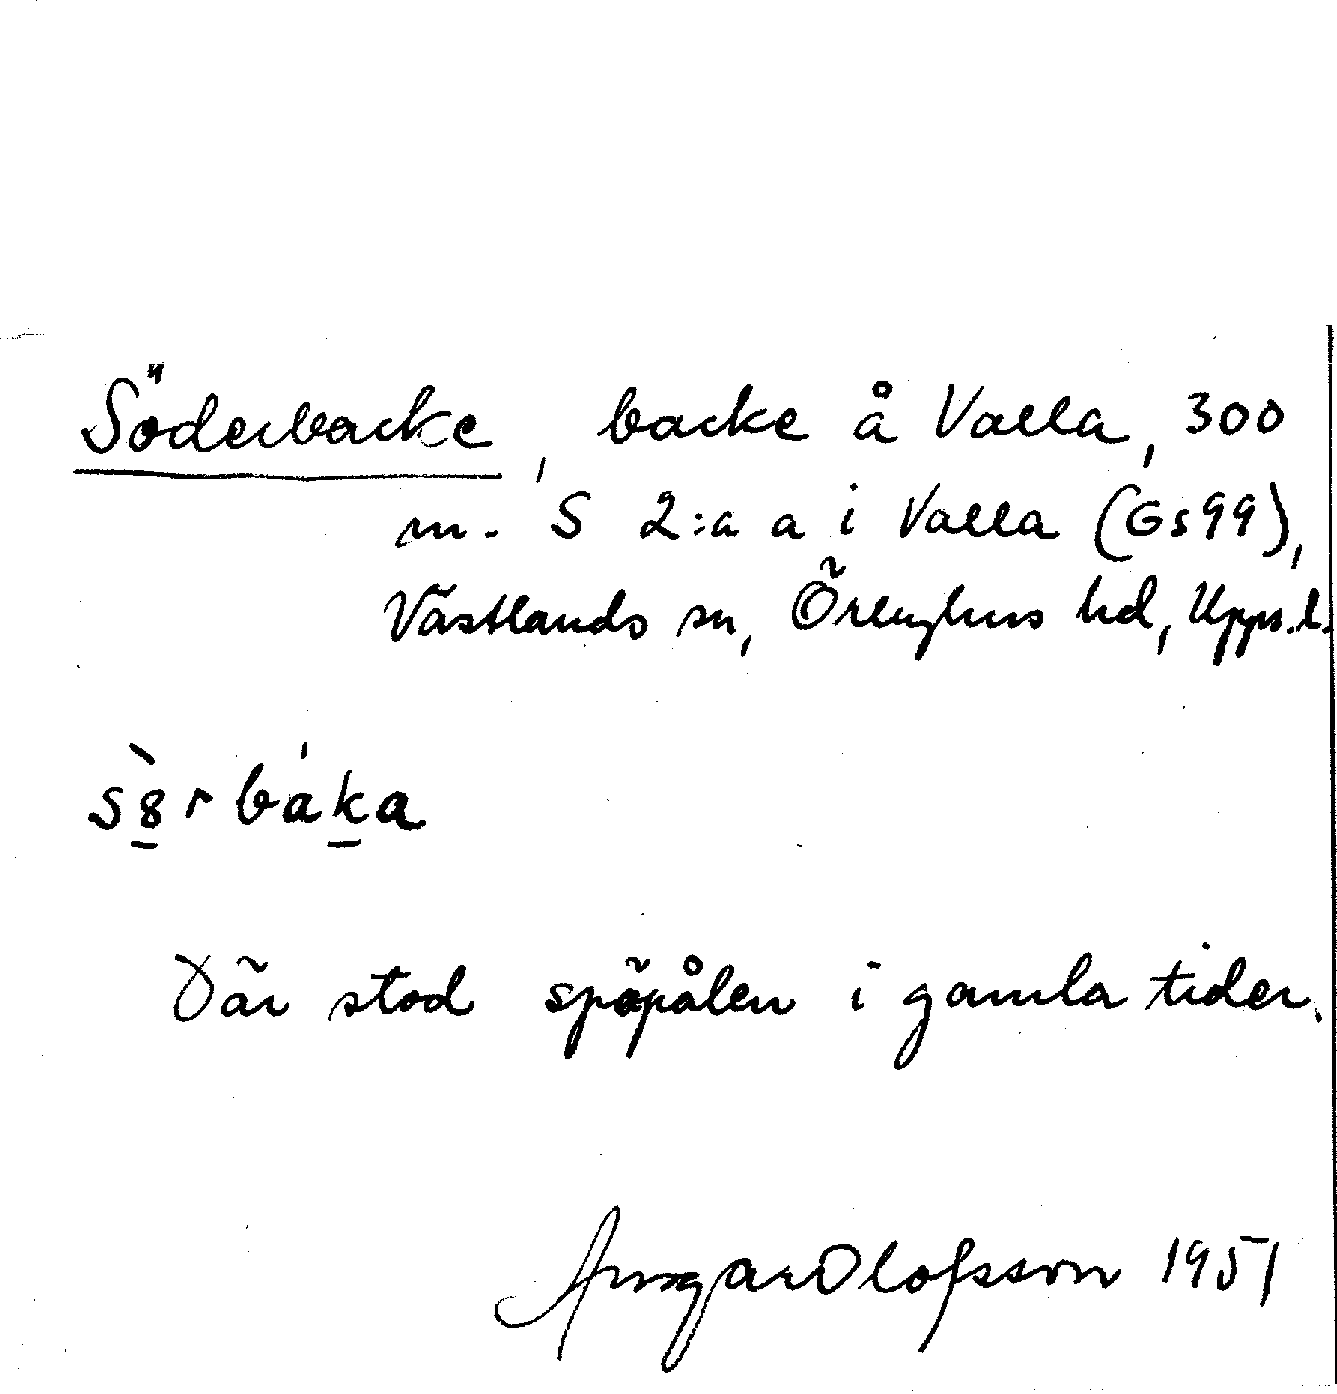 Söderbacke, backe å Valla, 300
m. S 2:a a i Valla (Gs99),
Västlands sn, Örbyhus hd, Upps.l.
s8̀rbáka
Där stod spöpålen i gamla tider.
Ansgar Olofsson 1951